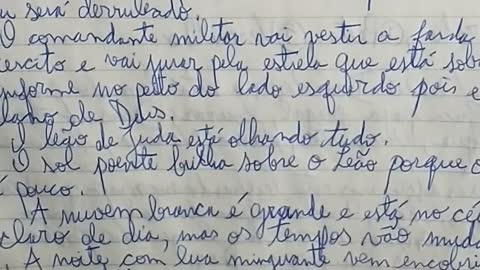 u será derrubado.
O comandante militar vai vestir a farda
ército e vai jurar pela estrela que está sob
niforme no peito do lado esquerdo pois e
lano de Deus.
O leão de Juda está olhando tudo.
O sol poente brilha sobre o Leão porque o
é pouco.
A nuvem branca é grande e está no cé
claro de dia, mas os tempos vão muda
A noite com lua minguante vem encobri